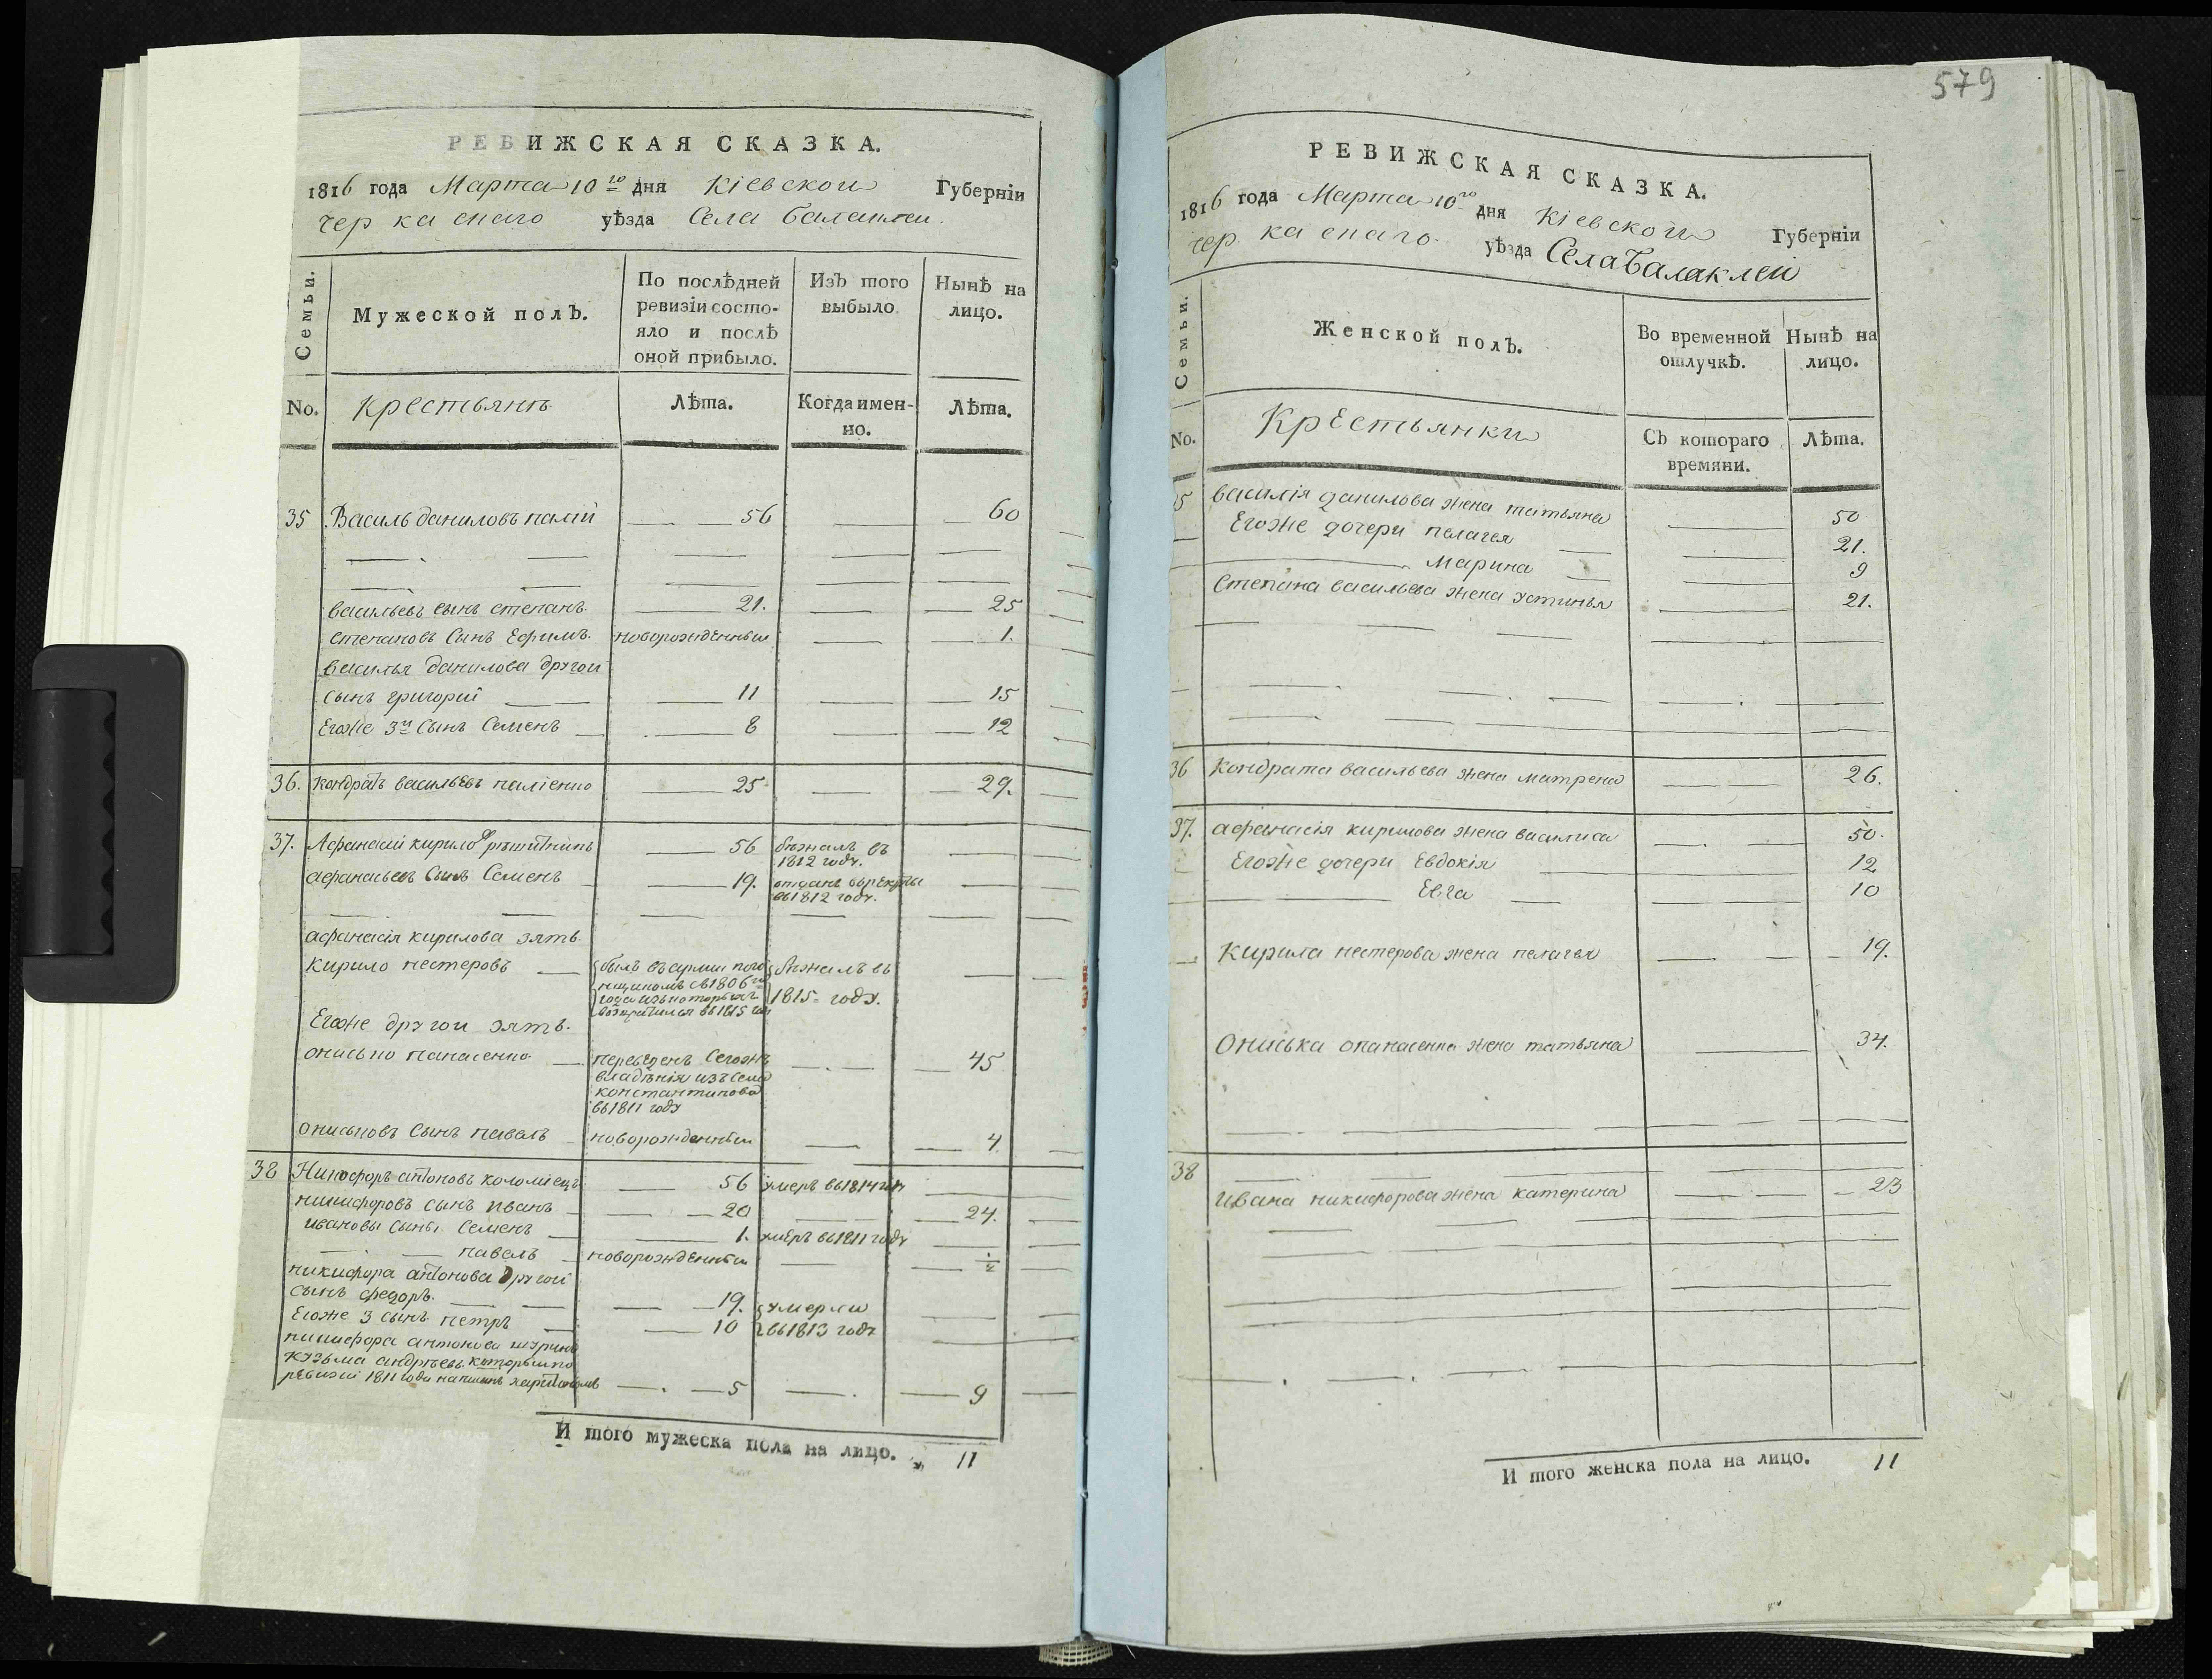 579
РЕВИЖСКАЯ СКАЗКА.
1816 года Марта 10го дня Кіевской Губерніи
черкаскаго уѣзда Села балаклеи.
Семьи.
Мужеской полъ.
По послѣдней
ревизіи состо-
яло и послѣ
оной прибыло.
Изъ того
выбыло
Нынѣ на
лицо.
No.
крестьянъ
Лѣта.
Когда имен-
но.
Лѣта.
35 Василь даниловъ палій 56 60
васильевъ сынъ степанъ 21. 25
степановъ Сынъ Ефимъ новорожденный 1.
василья данилова другой
сынъ григорий 11 15
Егоже 3й Сынъ Семенъ 8 12
36. кондратъ васильевъ паліенко 25 29.
37. Афанасий кирилов 56 бѣжалъ въ
1812 году.
афанасьевъ Сынъ Семенъ 19. отданъ вырекруты
въ1812 году.
афанасія кирилова зять
кирило нестеровъ былъ въармии пого бѣжалъ въ
нщикомъ съ1806го
1815 году.
возвратился въ1815 году
Егоже другой зять
онисько панасенко переведенъ Сегожъ 45
владѣнія изъ Села
константинова
въ1811 году
ониськовъ Сынъ павелъ новорожденный 4
38 Никифоръ антоновъ коломіецъ 56 умеръ въ1814 году
никифоровъ сынъ иванъ 20 24.
ивановы Сыны Семенъ 1. умеръ въ1811 году
павелъ новорожденный ½
никифора антонова другой
сынъ федоръ. 19. умерли
Егоже 3 сынъ петръ 10 въ1813 году
никифора антонова шуринъ
кузьма андрѣевъ который по
ревизии 1811 года написанъ харитономъ 5 9
И того мужеска пола на лицо. 11
РЕВИЖСКАЯ СКАЗКА.
1816 года Марта 10го дня Кіевской Губерніи
черкаскаго уѣзда Села Балаклеи
Семьи.
Женской полъ.
Во временной
отлучкѣ.
Нынѣ на
лицо.
No.
Крестьянки
Съ котораго
времяни.
Лѣта.
35 василія данилова жена татьяна 50
Егоже дочери пелагея 21.
Марина 9
Степана васильева жена устинья 21.
36 Кондрата васильева жена матрена 26.
37. афанасія кирилова жена василиса 50.
Егоже дочери Евдокія 12
Евга 10
Кирила нестерова жена пелагея 19.
Ониська опанасенка жена татьяна 34.
38
Ивана никифорова жена катерина 23
И того женска пола на лицо. 11